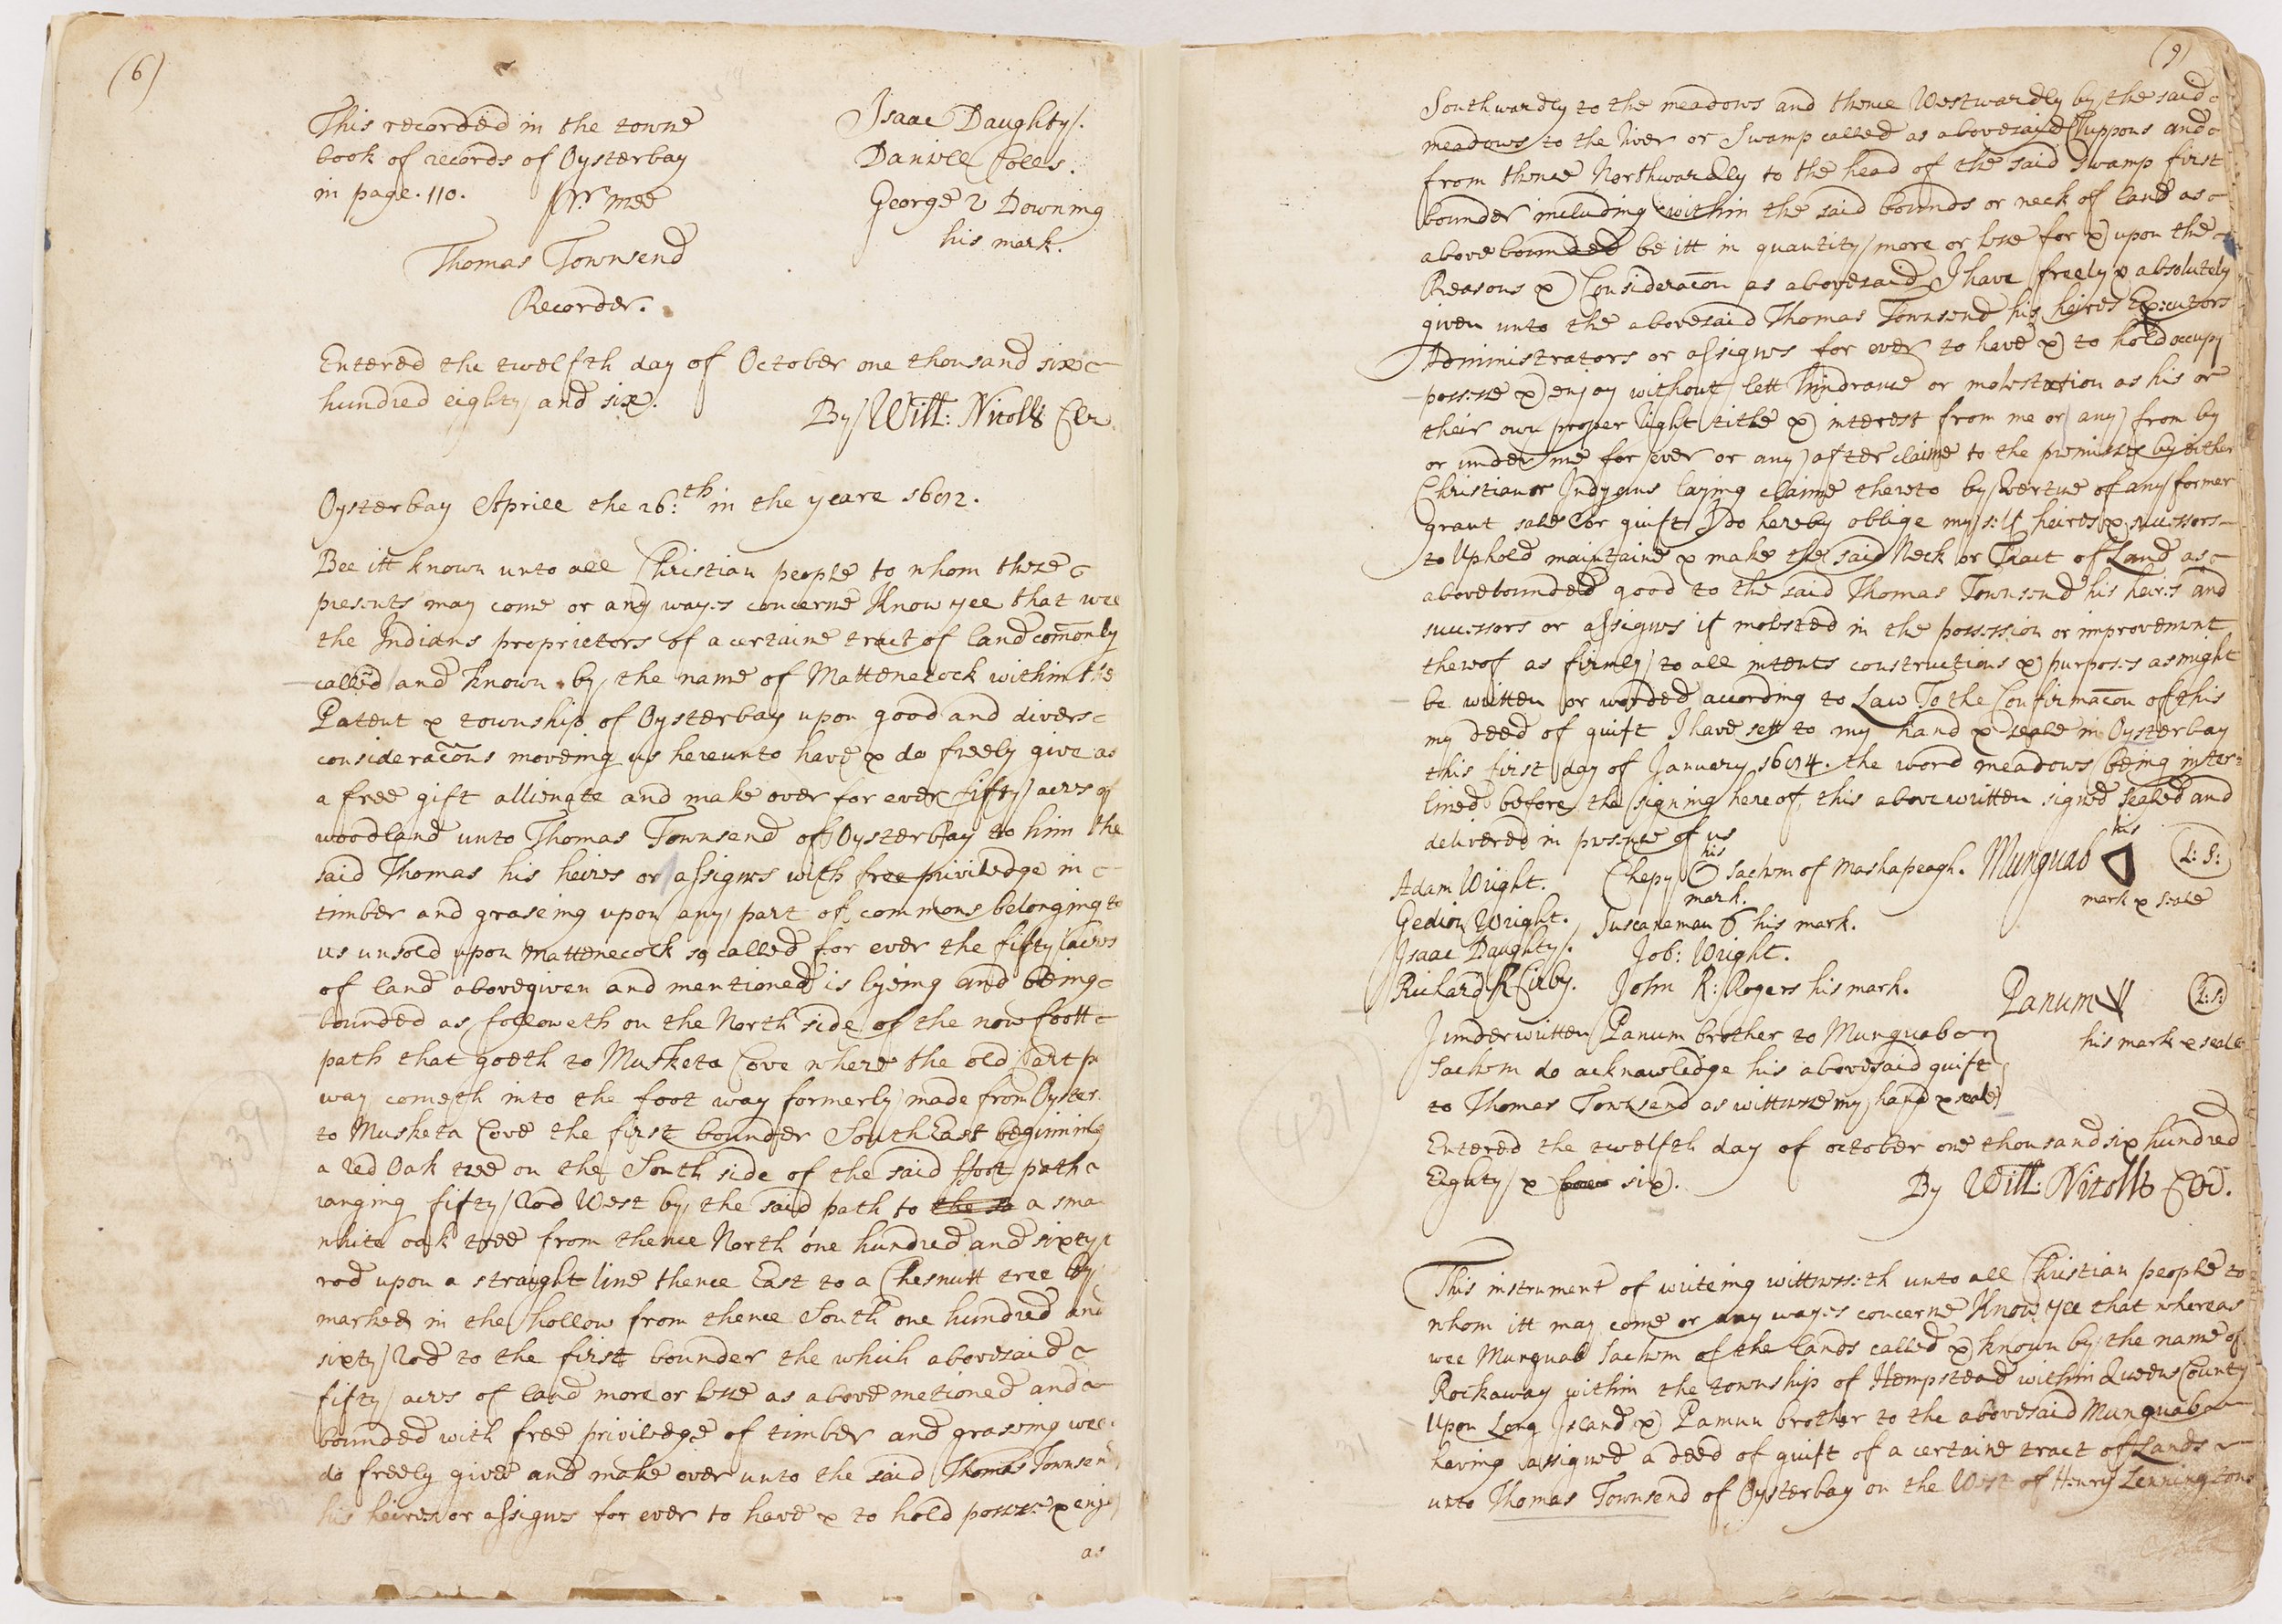 (6)
This recorded in the towne
book of records of Oysterbay
in page. 110. Pr mee
Thomas Townsend
Recorder.
Isaac Daughty.
Daniell Coles.
George Downing
his mark.
Entered the twelfth day of October one thousand six
hundred eighty and six.
By Will: Nicolls Cler.
Oysterbay Aprill the 26:th in the yeare
Bee itt known unto all Christian people to whom these
presents may come or any wayes concerne Know yee that wee
the Indians proprietors of a certaine tract of land comonly
called and known by the name of Mattenecock within the
Patent & township of Oysterbay upon good and divers
consideracons moveing us hereunto have & do freely give as
a free gift allienate and make over for ever fifty acres of
woodland unto Thomas Townsend of Oysterbay to him the
said Thomas his heires or assignes with free priviledge in
timber and graseing upon any part of commons belonging to
us unsold upon Mattenecock so called for ever the fifty acres
of land abovegiven and mentioned is lyeing and being
bounded as followeth on the North side of the now foott
path that goeth to Musketa Cove where the old cart p
way cometh into the foot way formerly made from Oyster
to Musketa Cove the first bounder South East beginning
a red Oak tree on the South side of the said ffoot path
ranging fifty Rod West by the said path to the sa a sma
white oak tree from thence North one hundred and sixty
rod upon a straight line thence East to a Chesnutt tree by
marked in the hollow from thence South one hundred and
sixty Rod to the first bounder the which abovesaid
fifty acres of land more or lesse as above metioned and
bounded with free priviledge of timber and graseing wee
do freely give and make over unto the said Thomas Townsend
his heires or assignes for ever to have & to hold possesse & enjoy
as
(9)
Southwardly to the meadows and thence Westwardly by the said
meadows to the River or Swamp called as abovesaid Cuppons and
from thence Northwardly to the head of the said swamp first
bounder including within the said bounds or neck of land as
abovebounded be itt in quantity more or lesse for & upon the
Reasons & Consideracon as abovesaid I have freely & absolutely
given unto the abovesaid Thomas Townsend his heires Executors
Administrators or assignes for ever to have & to hold occupy
possesse & enjoy without lett hindrance or molestation as his or
their own proper right title & interest from me or any from by
or under me for ever or any after claime to the premises by either
Christian or Indyans laying claime thereto by vertue of any former
grant sale or guift I do hereby oblige my self heires & successors
to Uphold maintaine & make the said Neck or Tract of Land as
abovebounded good to the said Thomas Townsend his heires and
successors or assignes if molested in the possession or improvement
thereof as firmly to all intents constructions & purposes as might
be written or worded according to Law To the Confirmacon of this
my deed of guift I have sett to my hand & seale in Oysterbay
this first day of January the word meadows being inter
lined before the signing hereof, this above written signed sealed and
delivered in presence of us
Adam Wright. Chepy his mark. Sachem of Mashapeagh. Munguab his mark & seale L: S:
Gedion Wright. Suscaneman his mark.
Isaac Daughty. Job: Wright.
Richard Kirby. John R: Rogers his mark. Panum his mark & seale L:S:
I underwritten Panum brother to Munguab
Sachem do acknowledge his abovesaid guift
to Thomas Townsend as wittnesse my hand & seale
Entered the twelfth day of october one thousand six hundred
Eighty & six.
By Will: Nicolls Cler.
This instrument of writeing wittnesseth unto all Christian people to
whom itt may come or any wayes concerne Know yee that whereas
wee Munguab Sachem of the lands called & known by the name of
Rockaway within the township of Hempstead within Queens County
Upon Long Island & Pamun brother to the abovesaid Munguab
having assigned a deed of guift of a certaine tract of Lands
unto Thomas Townsend of Oysterbay on the West of Henry Lenningtons